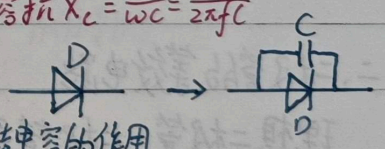 容抗 X_c = 1/ωC = 1/2πfC
C
D
D
结电容的作用